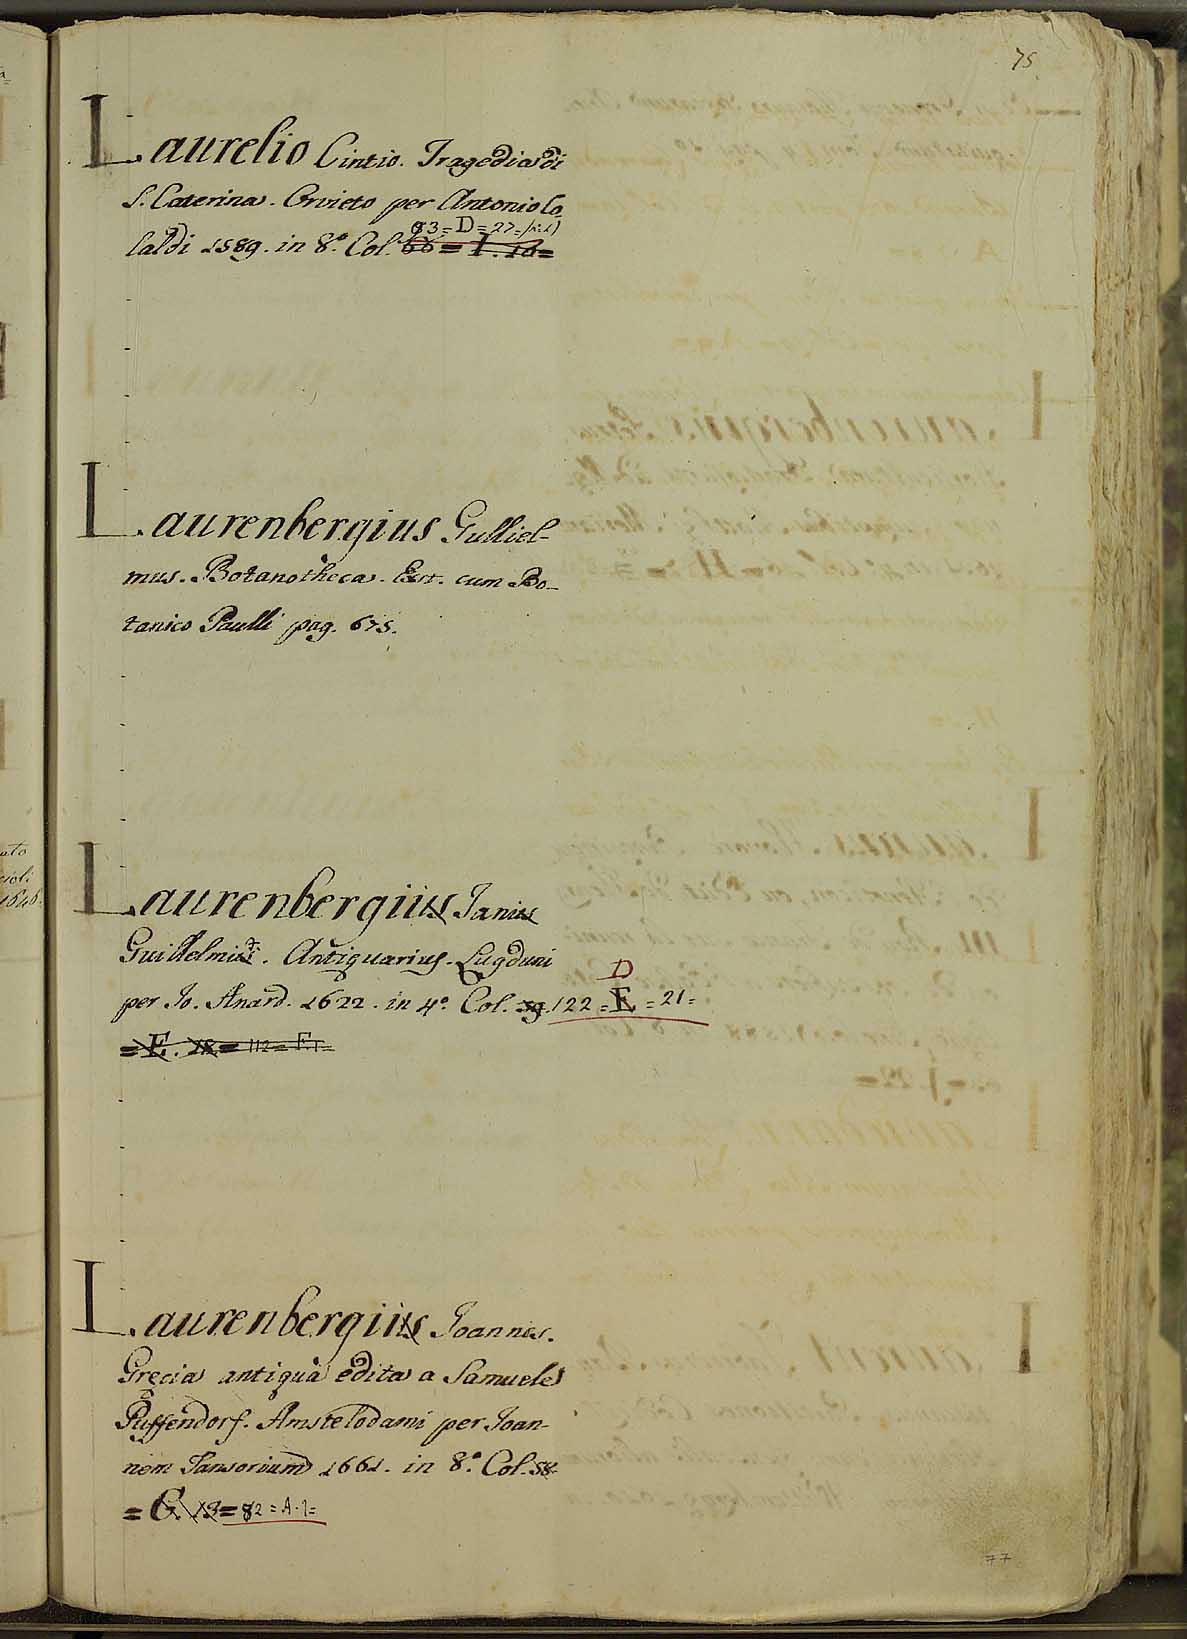 75
Laurelio Cintio. Tragedia di
S. Caterina. Orvieto per Antonio Co
laldi 1589. in 8.° Col. 66 = I. 10 =
93 = D = 27 =
Laurenbergius Gulliel-
mus. Botanotheca. Ext. cum Bo-
tanico Paulli pag. 675.
Laurenbergii Jani
Guillelmi. Antiquarius. Lugduni
per Jo. Anard. 1622. in 4.° Col. 59. 122 = E = 21 =
D
= E. 18 = 112 = F. 1 =
Laurenbergii Joannes.
Grecia antiqua edita a Samuele
Puffendorf. Amstelodami per Joan-
nem Jansonium 1661. in 8.° Col. 58.
= G. 13 = 82 = A. 1 =
77
ato
cioli
1646.